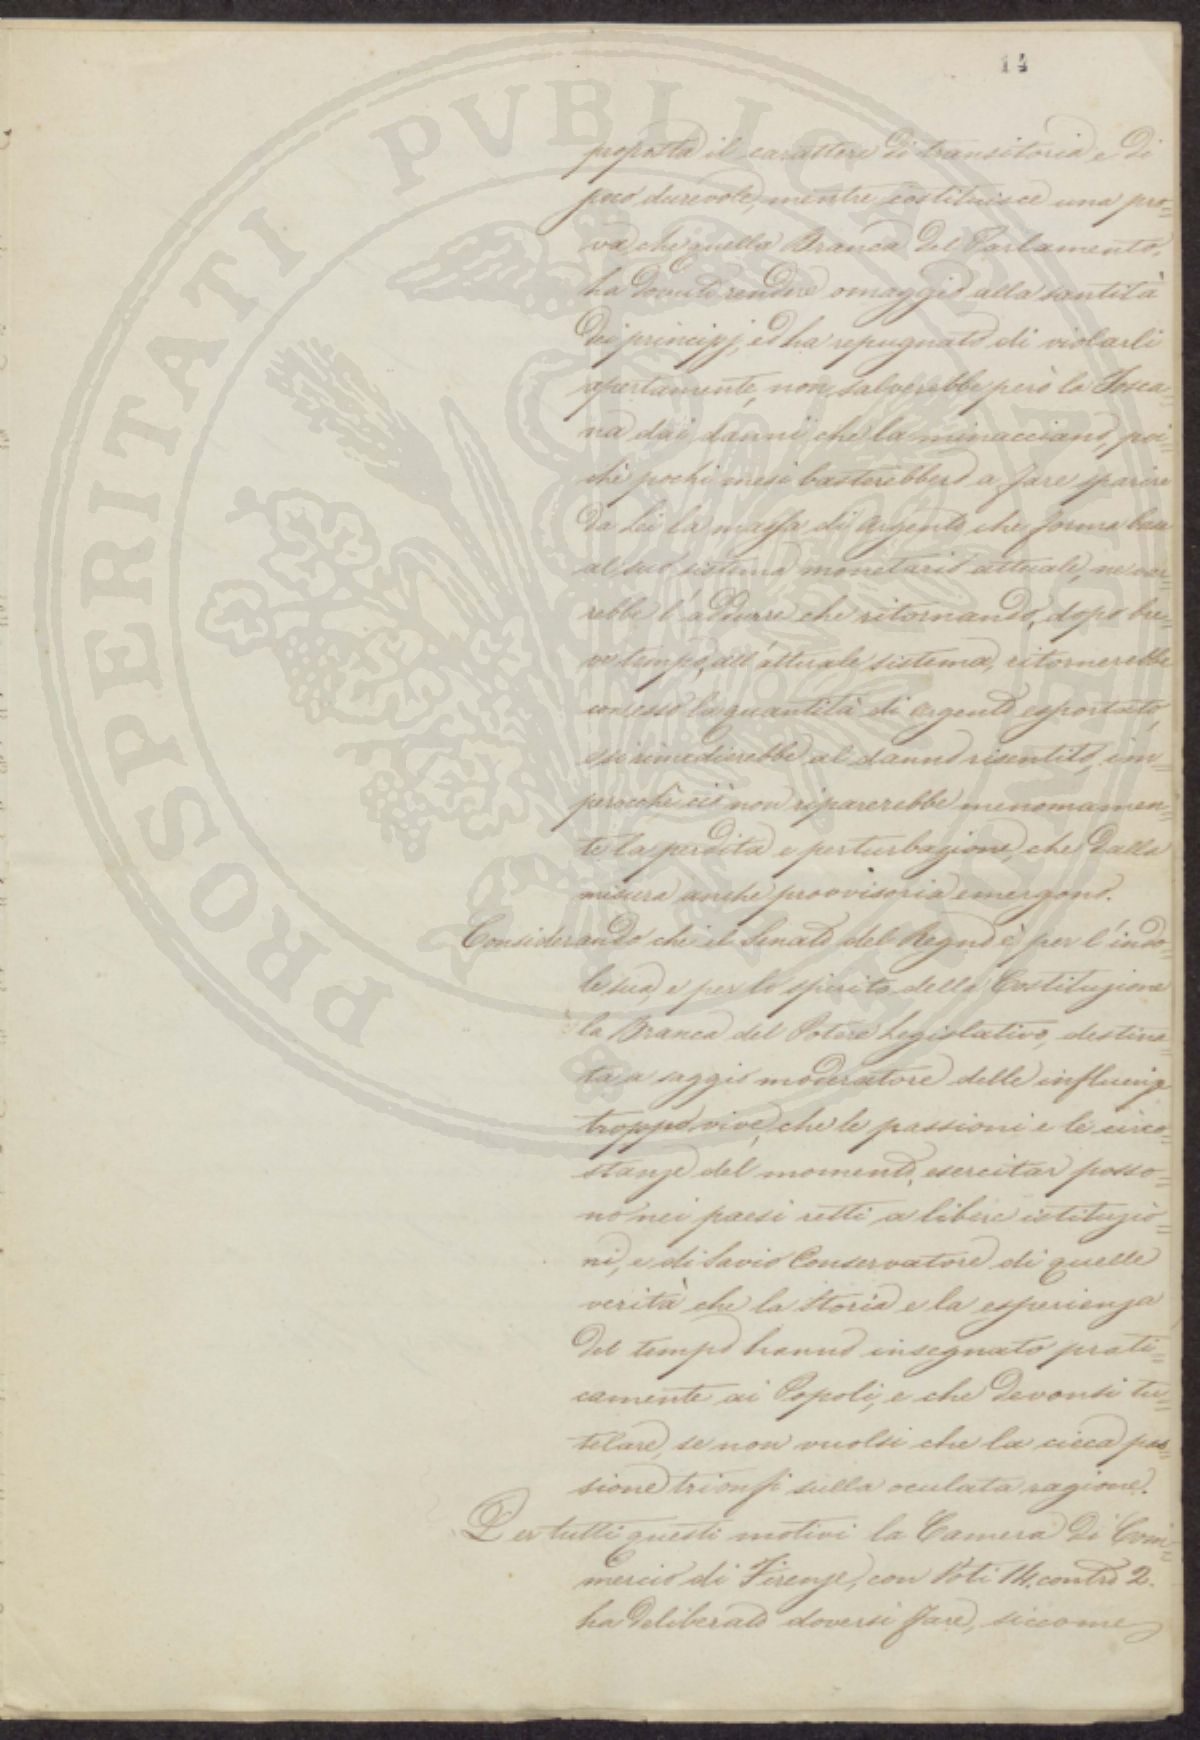 14
PROSPERITATI PUBLICAE AUGENDAE
proposta il carattere di transitoria e di
poco durevole, mentre costituisce una pro=
va che quella Branca del Parlamento,
ha dovuto rendere omaggio alla santità
dei principj, ed ha repugnato di violarli
apertamente, non salverebbe però la Tosca=
na dai danni che la minacciano, poi=
chè pochi mesi basterebbero a fare sparire
da Lei la massa di argento che forma base
al suo sistema monetario attuale, ne var=
rebbe l'addurre che ritornando, dopo bre=
ve tempo, all'attuale sistema, ritornerebbe
con esso la quantità di argento esportato,
e si rimedierebbe al danno risentito, im=
perocchè ciò non riparerebbe menomamen=
te la perdita e perturbazione, che dalla
misura anche provvisoria emergono.
Considerando che il Senato del Regno è per l'indo=
le sua, e per lo spirito della Costituzione
la Branca del Potere Legislativo, destina=
ta a saggio moderatore delle influenze
troppo vive, che le passioni e le circo=
stanze del momento, esercitar posso=
no nei paesi retti a libere istituzio=
ni, e di Savio Conservatore di quelle
verità che la Storia e la esperienza
del tempo hanno insegnato prati=
camente ai Popoli, e che devonsi tu=
telare, se non vuolsi che la cieca pas=
sione trionfi sulla oculata ragione.
Per tutti questi motivi la Camera di Com=
mercio di Firenze, con Voti 14. contro 2.
ha deliberato doversi fare, siccome